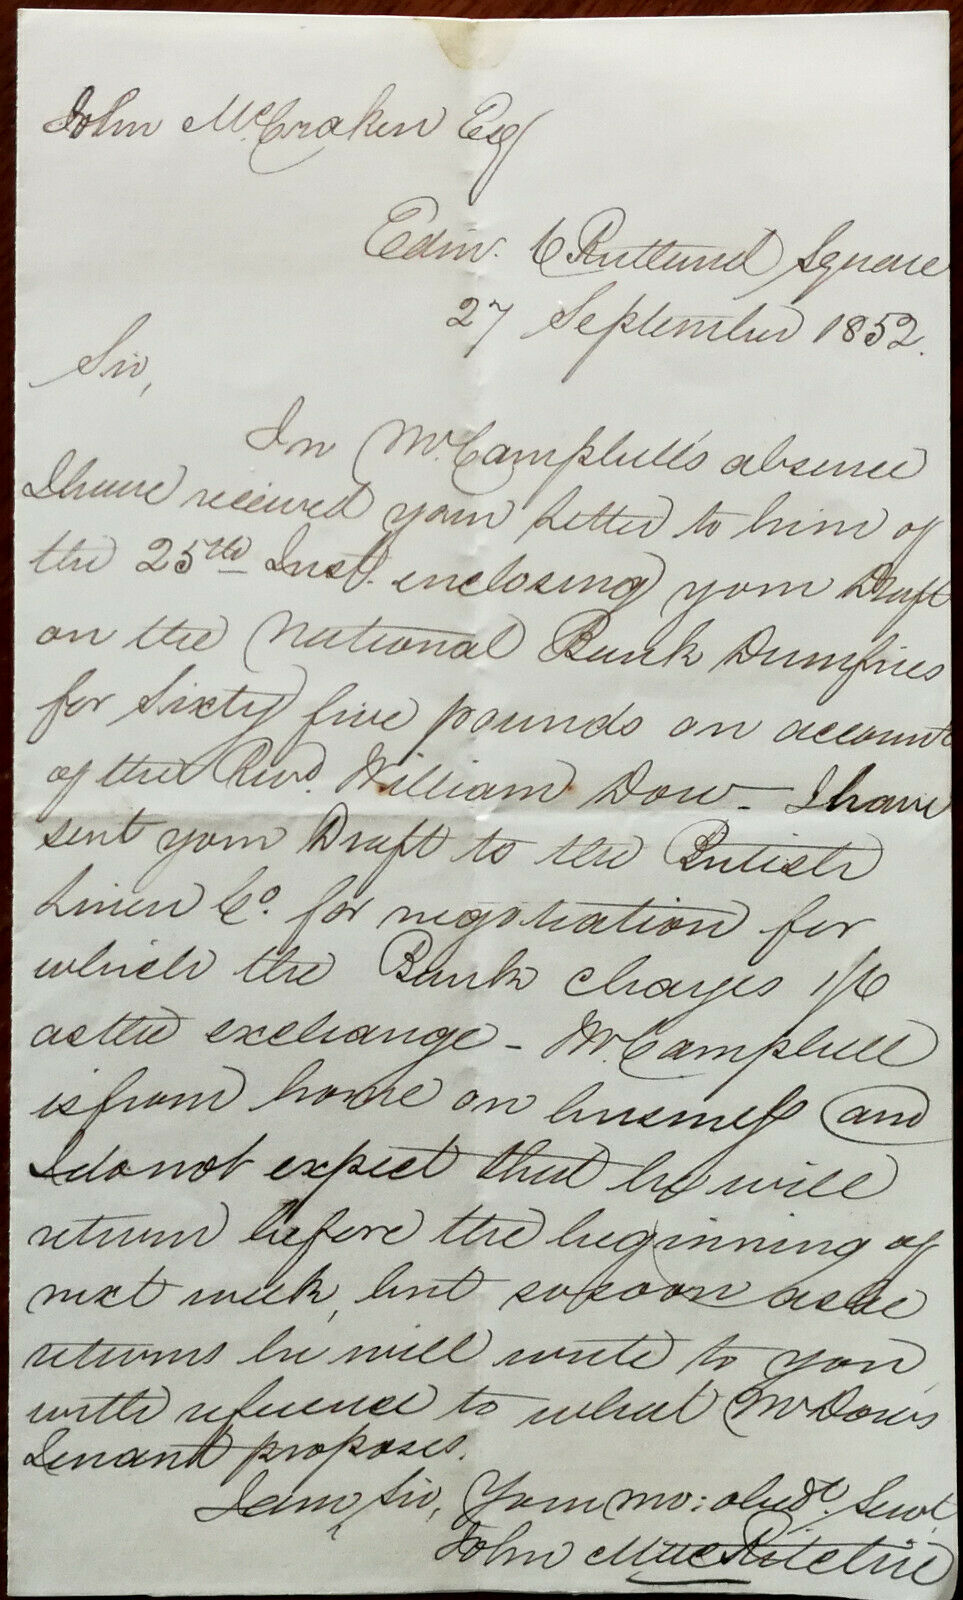 John McCraken Esq
Edinr. 6 Rutland Square
27 September 1852.
Sir,
In Mr. Campbell's absence
I have received your Letter to him of
the 25th Inst. enclosing your Draft
on the National Bank Dumfries
for Sixty five pounds on account
of the Revd. William Dow - I have
sent your Draft to the British
Linen Co. for negotiation for
which the Bank charges 1/6
as the exchange - Mr. Campbell
is from home on business and
I do not expect that he will
return before the beginning of
next week, but so soon as he
returns he will write to you
with reference to what Mr Dow's
Tenant proposes.
I am, Sir, Your mo: obedt. Servt.
John MacRitchie